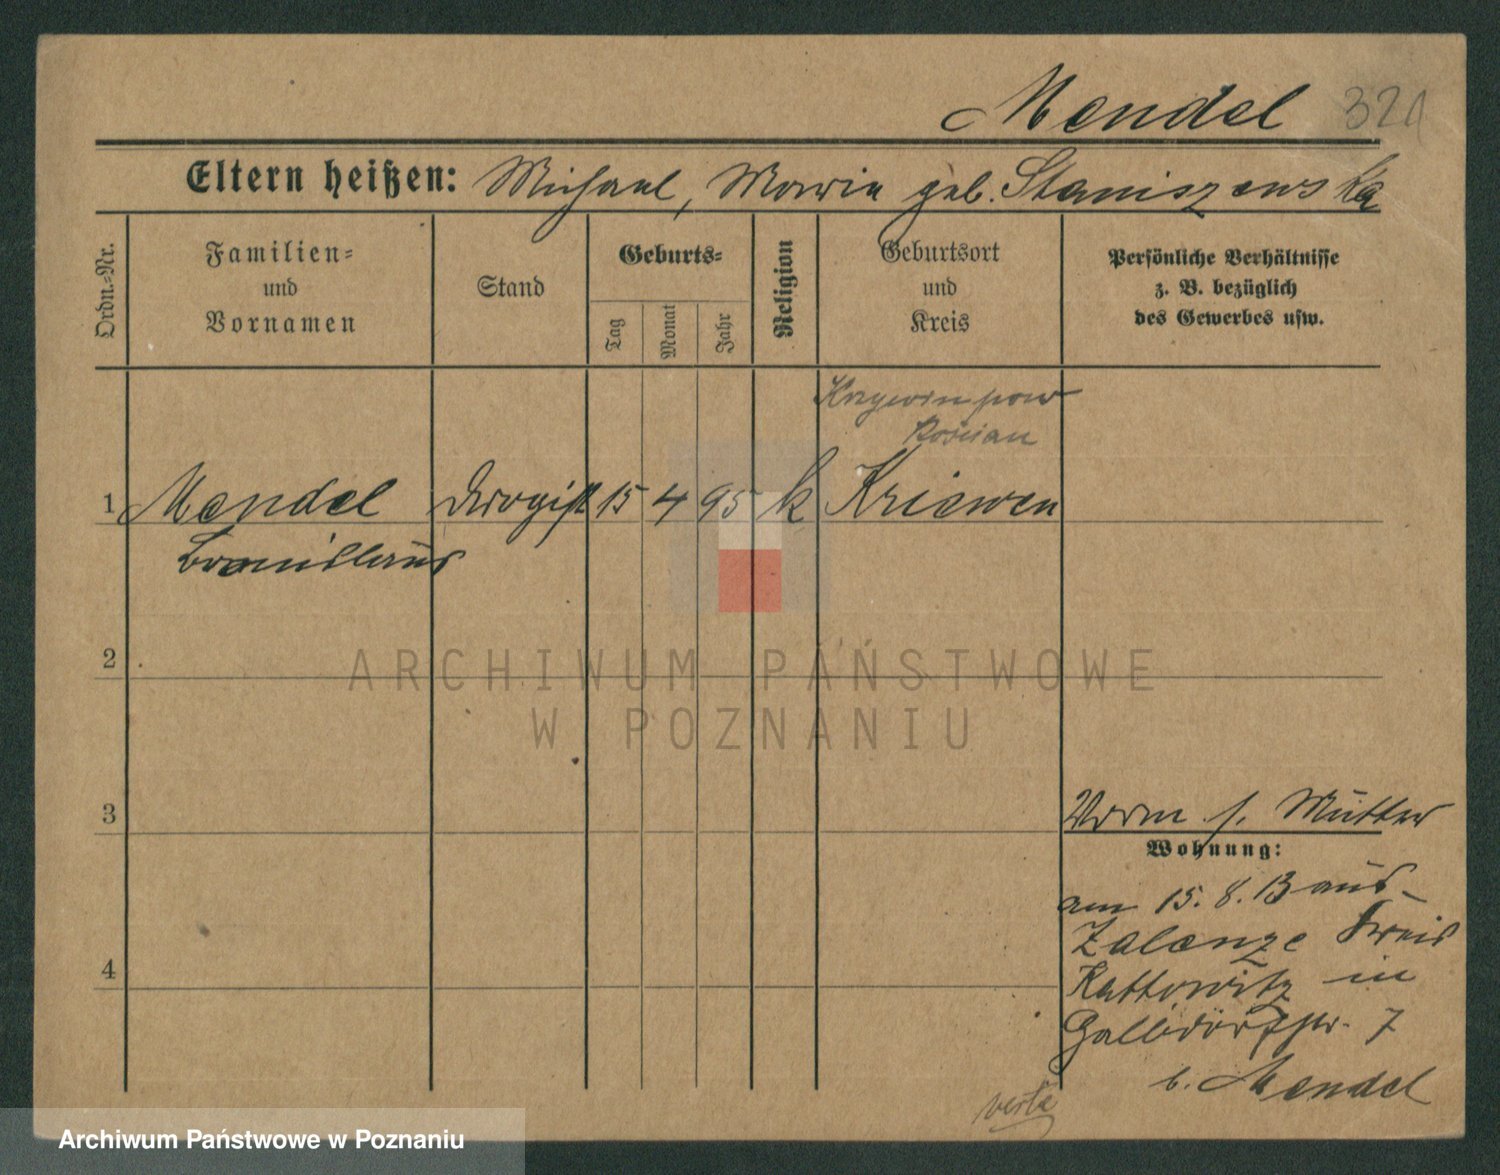 Mendel 321
Eltern heißen: Michael, Maria geb. Staniszewska
Ordn.-Nr.
Familien-
und
Vornamen
Stand
Geburts-
Tag
Monat
Jahr
Religion
Geburtsort
und
Kreis
Persönliche Verhältnisse
z. B. bezüglich
des Gewerbes usw.
Krzywin pow
Kościan
1 Mendel Drogist 15 4 95 k Kriewen
Bronislaus
2
ARCHIWUM PAŃSTWOWE
W POZNANIU
3
Vorm s. Mutter
Wohnung:
am 15. 8. 13 aus
Zalenze Kreis
4
Kattowitz in
7
b. Mendel
verte
Archiwum Państwowe w Poznaniu